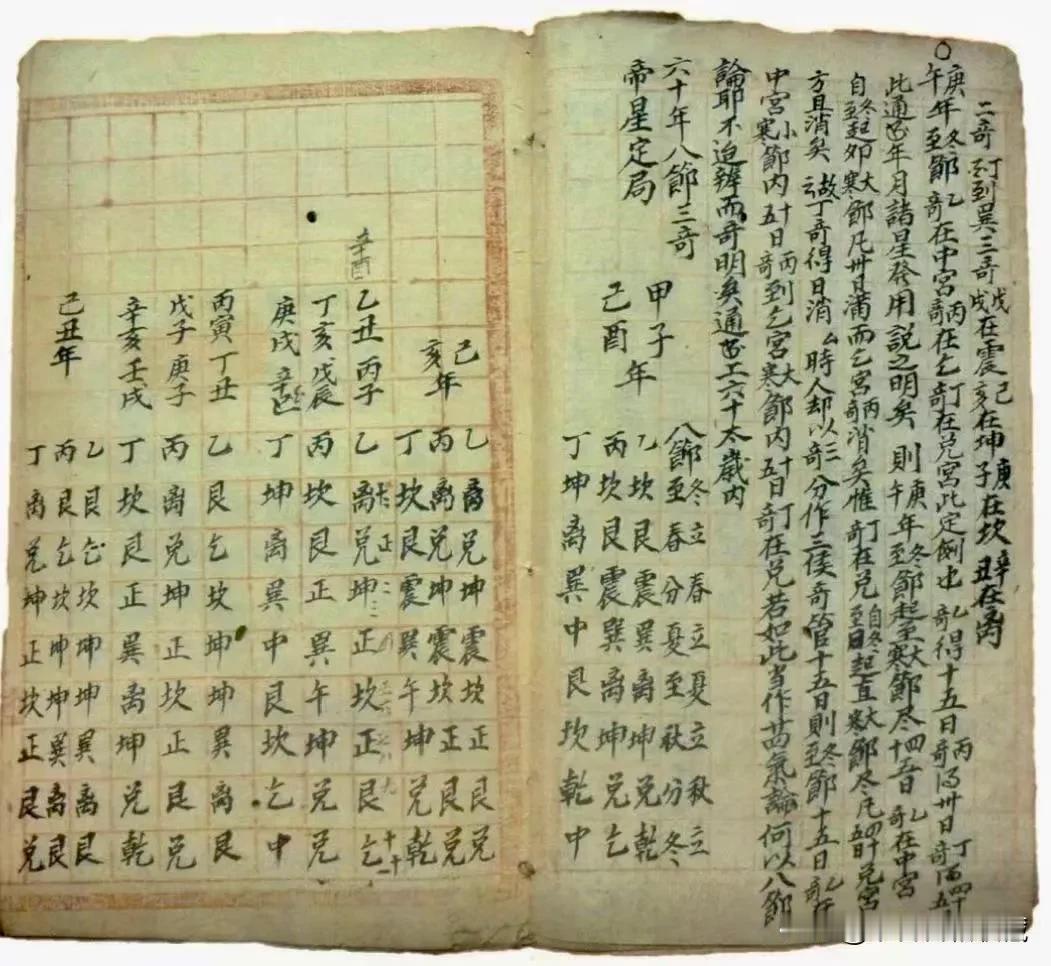 二奇丁到巽三奇戊戌在震己亥在坤庚子在坎辛丑在离
庚午年冬至節乙奇在中宮丙奇在乞丁奇在兌宮此定例也乙奇得十五日丙奇得卅日丁奇
此通書年月諸星發用說之明矣則庚午年冬至節起至大寒節尽四十五日乙奇在中宮
自冬至起夘大寒節凡卅日満而乞宮丙奇消矣惟丁奇在兌自冬至日起直大寒節尽凡四十五日兌宮
方且消矣故云丁奇得日消么時人却以三奇分作三候奇管十五日則冬至節十五日乙奇在
中宮小寒節内十五日丙奇到乞宮大寒節内十五日丁奇在兌若如此当作節氣論何以八節
論耶不迨辨而奇明矣通書工六十太歳内
六十年八節三奇
帝星定局
甲子
己酉年
八節冬至立春春分立夏夏至立秋秋分立冬
乙坎艮震巽離坤兌乾
丙坎艮震巽离坤兌乞
丁坤离巽中艮坎乾中
己亥年
乙离兌坤震坎正艮兌
丙离兌坤震坎正艮兌
丁坎艮震巽午坤兌乾
乙丑丙子
辛酉
乙离兌坤正坎正艮乞
丁亥戊辰
丙坎艮正巽午坤兌兌
庚戌辛巳
丁坤离巽中艮坎乞中
丙寅丁丑
乙艮乞坎坤坤巽离艮
戊子庚子
丙离兌坤正坎正艮兌
辛亥壬戌
丁坎艮正巽离坤兌乾
己丑年
乙艮乞坎坤坤巽离艮
丙艮乞坎坤坤巽离艮
丁离兌坤正坎正艮兌